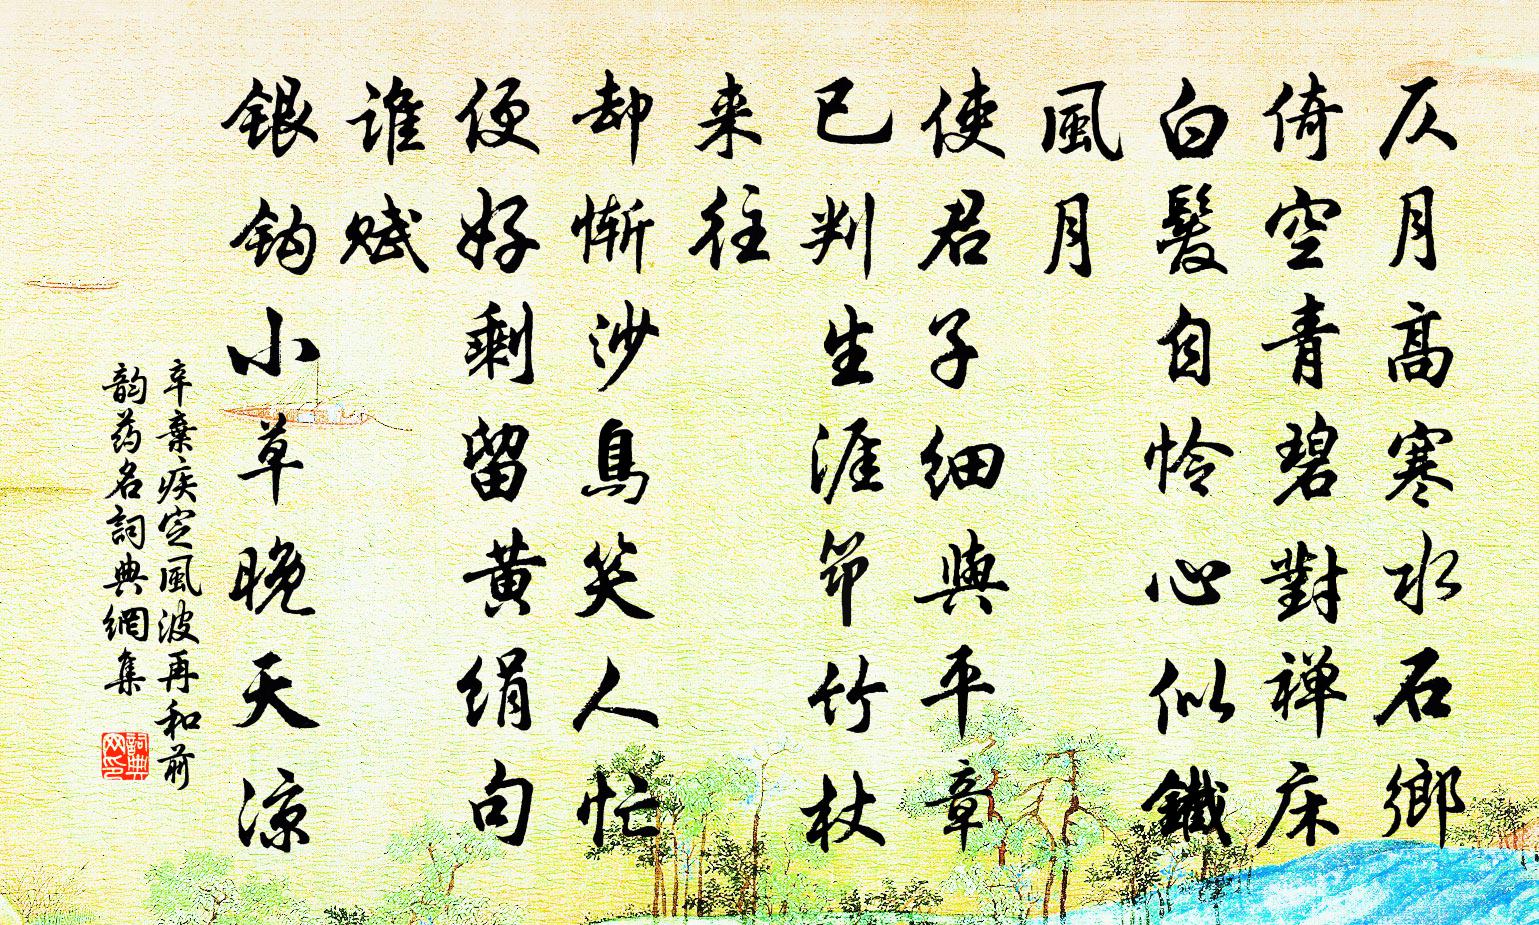 仄月高寒水石鄉
倚空青碧對禅床
白髮自怜心似鐵
風月
使君子細與平章
已判生涯笻竹杖
来往
却慚沙鳥笑人忙
便好剩留黄绢句
谁赋
銀鈎小草晚天凉
辛棄疾定風波再和前
韵药名詞典網集
詞典
网印